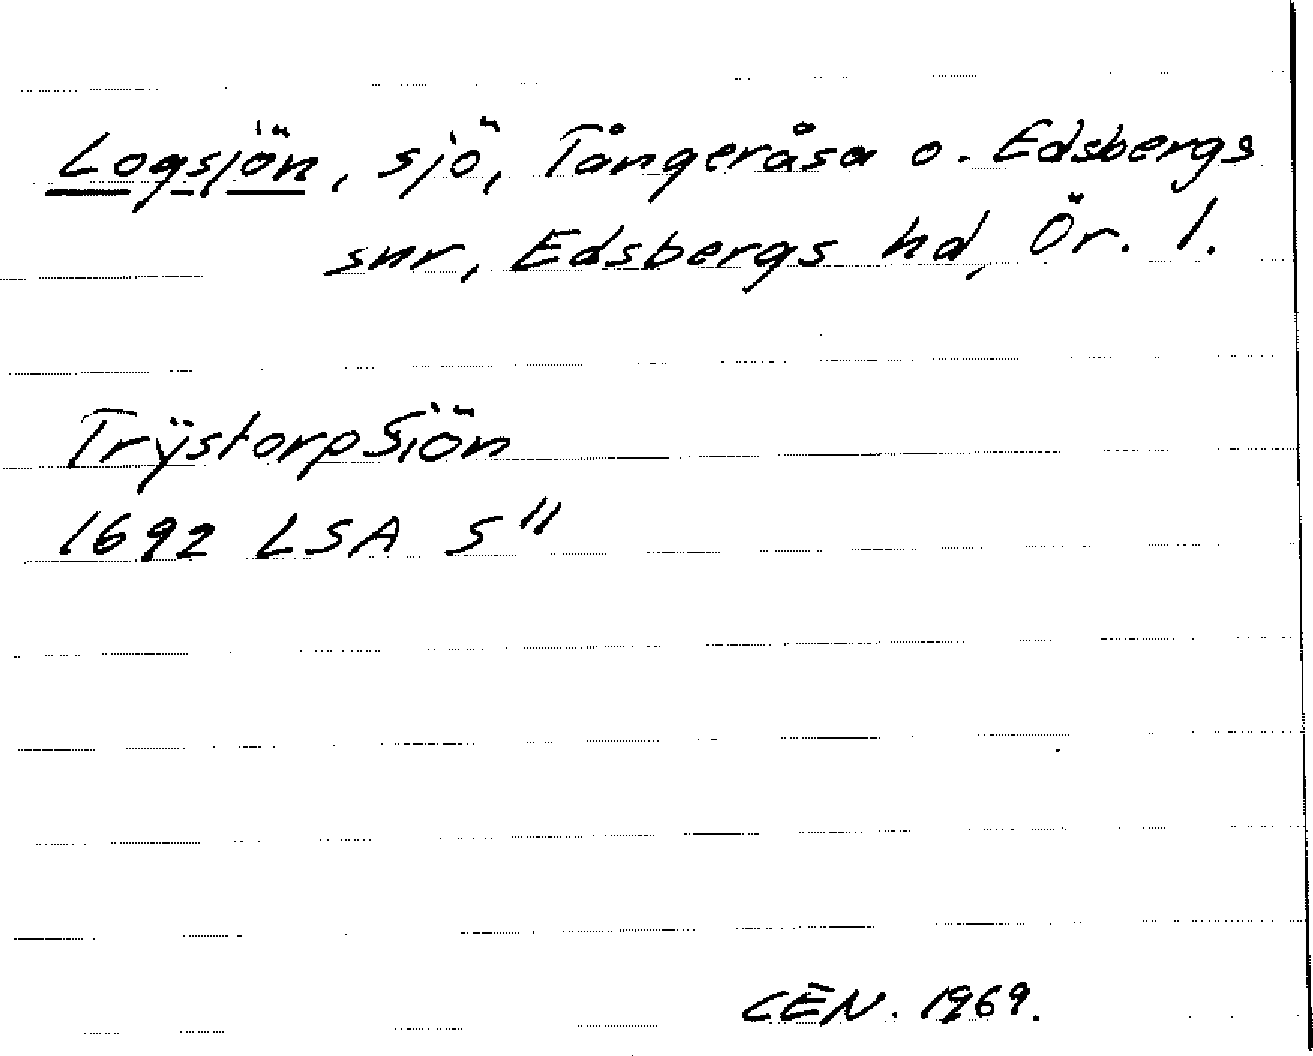 Logsjön, sjö, Tångeråsa o. Edsbergs
snr, Edsbergs hd, Ör. l.
TrÿstorpSiön
1692 LSA S"
CEN. 1969.